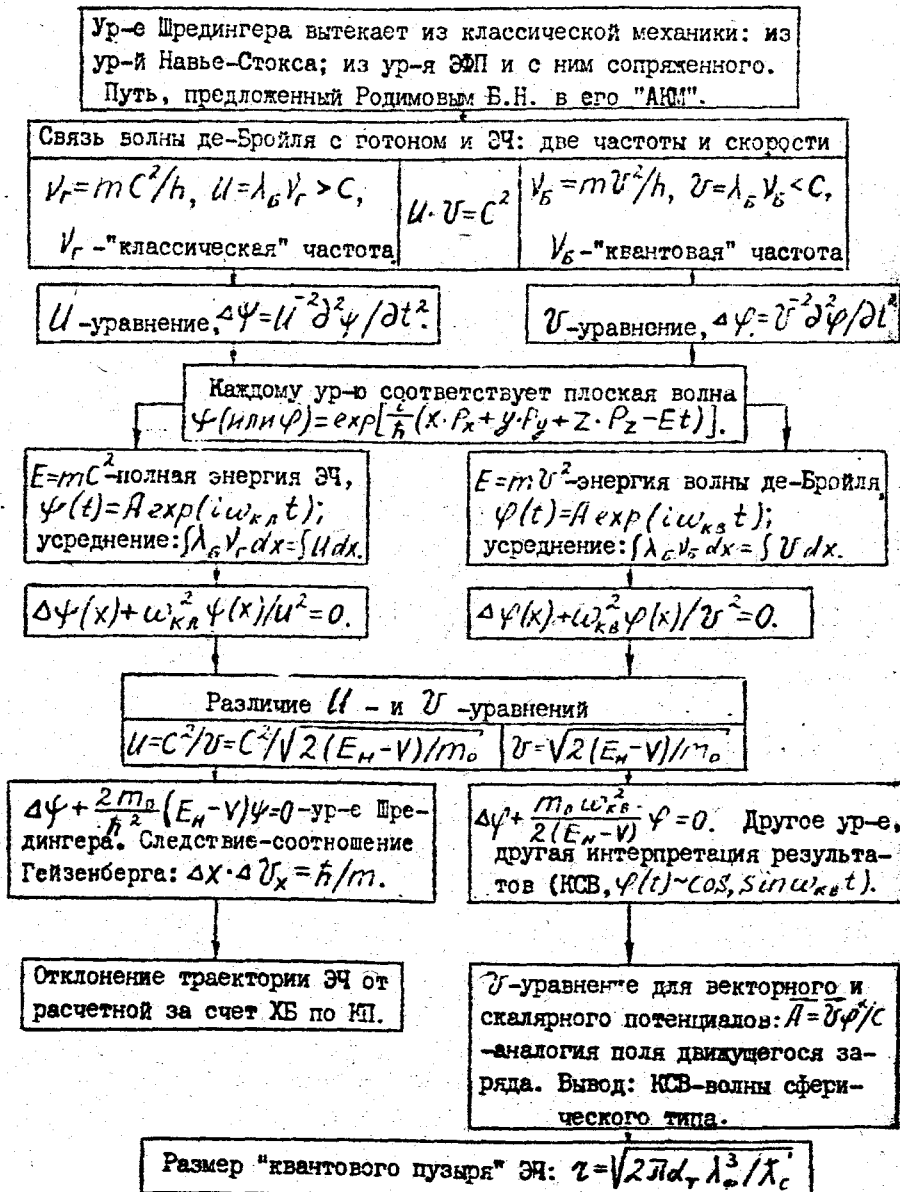 Ур-е Шредингера вытекает из классической механики: из
ур-й Навье-Стокса; из ур-я ЭФП и с ним сопряженного.
Путь, предложенный Родимовым Б.Н. в его "АКМ".
Связь волны де-Бройля с готоном и ЭЧ: две частоты и скорости
ν_Г = mC²/h, U = λ_Б ν_Г > C,
ν_Г -"классическая" частота
U · υ = C²
ν_Б = mυ²/h, υ = λ_Б ν_Б < C,
ν_Б -"квантовая" частота
U -уравнение, Δψ = U⁻² ∂²ψ/∂t².
υ -уравнение, Δφ = υ⁻² ∂²φ/∂t²
Каждому ур-ю соответствует плоская волна
ψ(или φ) = exp[i/ħ (x·Pₓ + y·P_y + z·P_z − Et)].
E = mC² -полная энергия ЭЧ,
ψ(t) = A exp(iω_кл t);
усреднение: ∫λ_Б ν_Г dx = ∫U dx.
E = mυ² -энергия волны де-Бройля,
φ(t) = A exp(iω_кв t);
усреднение: ∫λ_Б ν_Б dx = ∫υ dx.
Δψ(x) + ω²_кл ψ(x)/U² = 0.
Δφ(x) + ω²_кв φ(x)/υ² = 0.
Различие U - и υ -уравнений
U = C²/υ = C²/√2(E_н − V)/m₀
υ = √2(E_н − V)/m₀
Δψ + 2m₀/ħ² (E_н − V)ψ = 0 -ур-е Шре-
дингера. Следствие-соотношение
Гейзенберга: Δx · Δυₓ = ħ/m.
Δφ + m₀ω²_кв/2(E_н − V) φ = 0. Другое ур-е,
другая интерпретация результа-
тов (КСВ, φ(t) ~ cos, sin ω_кв t).
Отклонение траектории ЭЧ от
расчетной за счет ХБ по КП.
υ-уравнение для векторного и
скалярного потенциалов: A̅ = υ̅φ*/C
-аналогия поля движущегося за-
ряда. Вывод: КСВ-волны сфери-
ческого типа.
Размер "квантового пузыря" ЭЧ: r = √2πα_т λ³